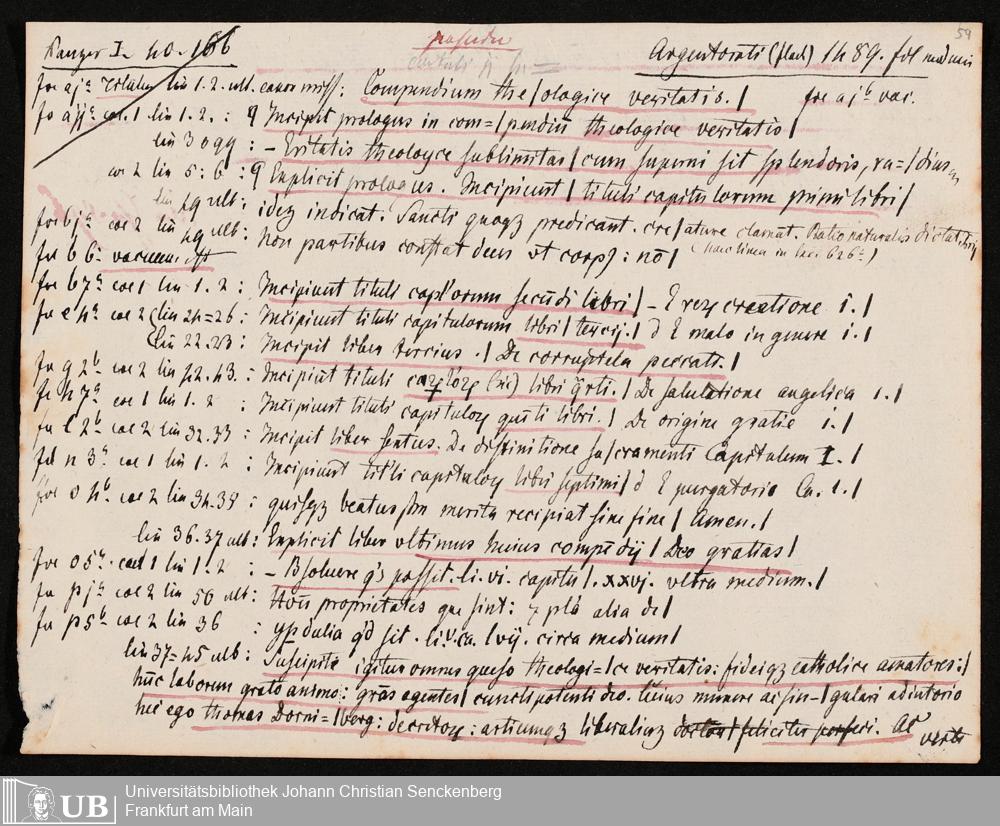 Panzer I. 40. 166
Argentorati (flach) 1489. fol
59
fol aja Titulus lin 1.2. ult. : Compendium the/ologice veritatis. / fol ajb vac.
fo aija col. 1 lin 1.2. : Incipit prologus in com=/pendiu theologice veritatis /
lin 3 : - Eritatis theologyce sublimitas / cum superni sit splendoris, ra=/dius
col 2 lin 5. 6 : Explicit prologus. Incipiunt / tituli capitulorum primi libri /
lin 49 ult: idez indicat. Sancti quoqz predicant. cre/ature clamat. Ratio naturalis dictat
fol bja col 2 lin 49 ult: Non partibus constat deus ut corpq : no / (haec linea in
fol b 6a vacuum est
fol b7a col 1 lin 1. 2 : Incipiunt tituli capl'orum secudi libri / - E creatione i. /
fol e 4a col 2 lin 24=26 : Incipiunt tituli capitulorum libri / tercij. / d E malo in genere i. /
lin 22.23 : Incipit liber tercius . / De corruptela peccati. /
fol g 2b col 2 lin 42.43. : Incipiut tituli (sic) libri qrti. / De salutatione angelica 1. /
fo h7a col 1 lin 1. 2 : Incipiunt tituli capituloq quiti libri. / De origine gratie i. /
fol l 2b col 2 lin 32.33 : Incipit liber sextus. De diffinitione sa/cramenti Capitulum I. /
fol n 3a col 1 lin 1. 2 : Incipiunt tit'li capituloq libri septimi / d E purgatorio Ca. 1. /
fol o 4b col 2 lin 34.35 : quisqz beatus merita recipiat sine fine / Amen. /
lin 36.37 ult: Explicit liber ultimus huius compedij / Deo gratias /
fol o5a col 1 lin 1. 2 : - Bsoluere q's possit. li. vi. capitu / . xxvj. vltra medium. /
fol pja col 2 lin 50 ult: proprietates que sint : pla alia de /
fol p5b col 2 lin 36 : ypdulia q'd sit . li.v. ca. / vij. circa medium /
lin 37=45 ult: Suscipite igitur omnes queso theologi=/ce veritatis: fideiqz catholice amatores: /
huc laborem grato animo: gras agentes / cunctipotenti deo. cuius munere ac sin=/gulari adiutorio
hec ego thomas Dorni=/berg: decretoq : artiumqz liberaliuz doctor / feliciter
Universitätsbibliothek Johann Christian Senckenberg
UB
Frankfurt am Main